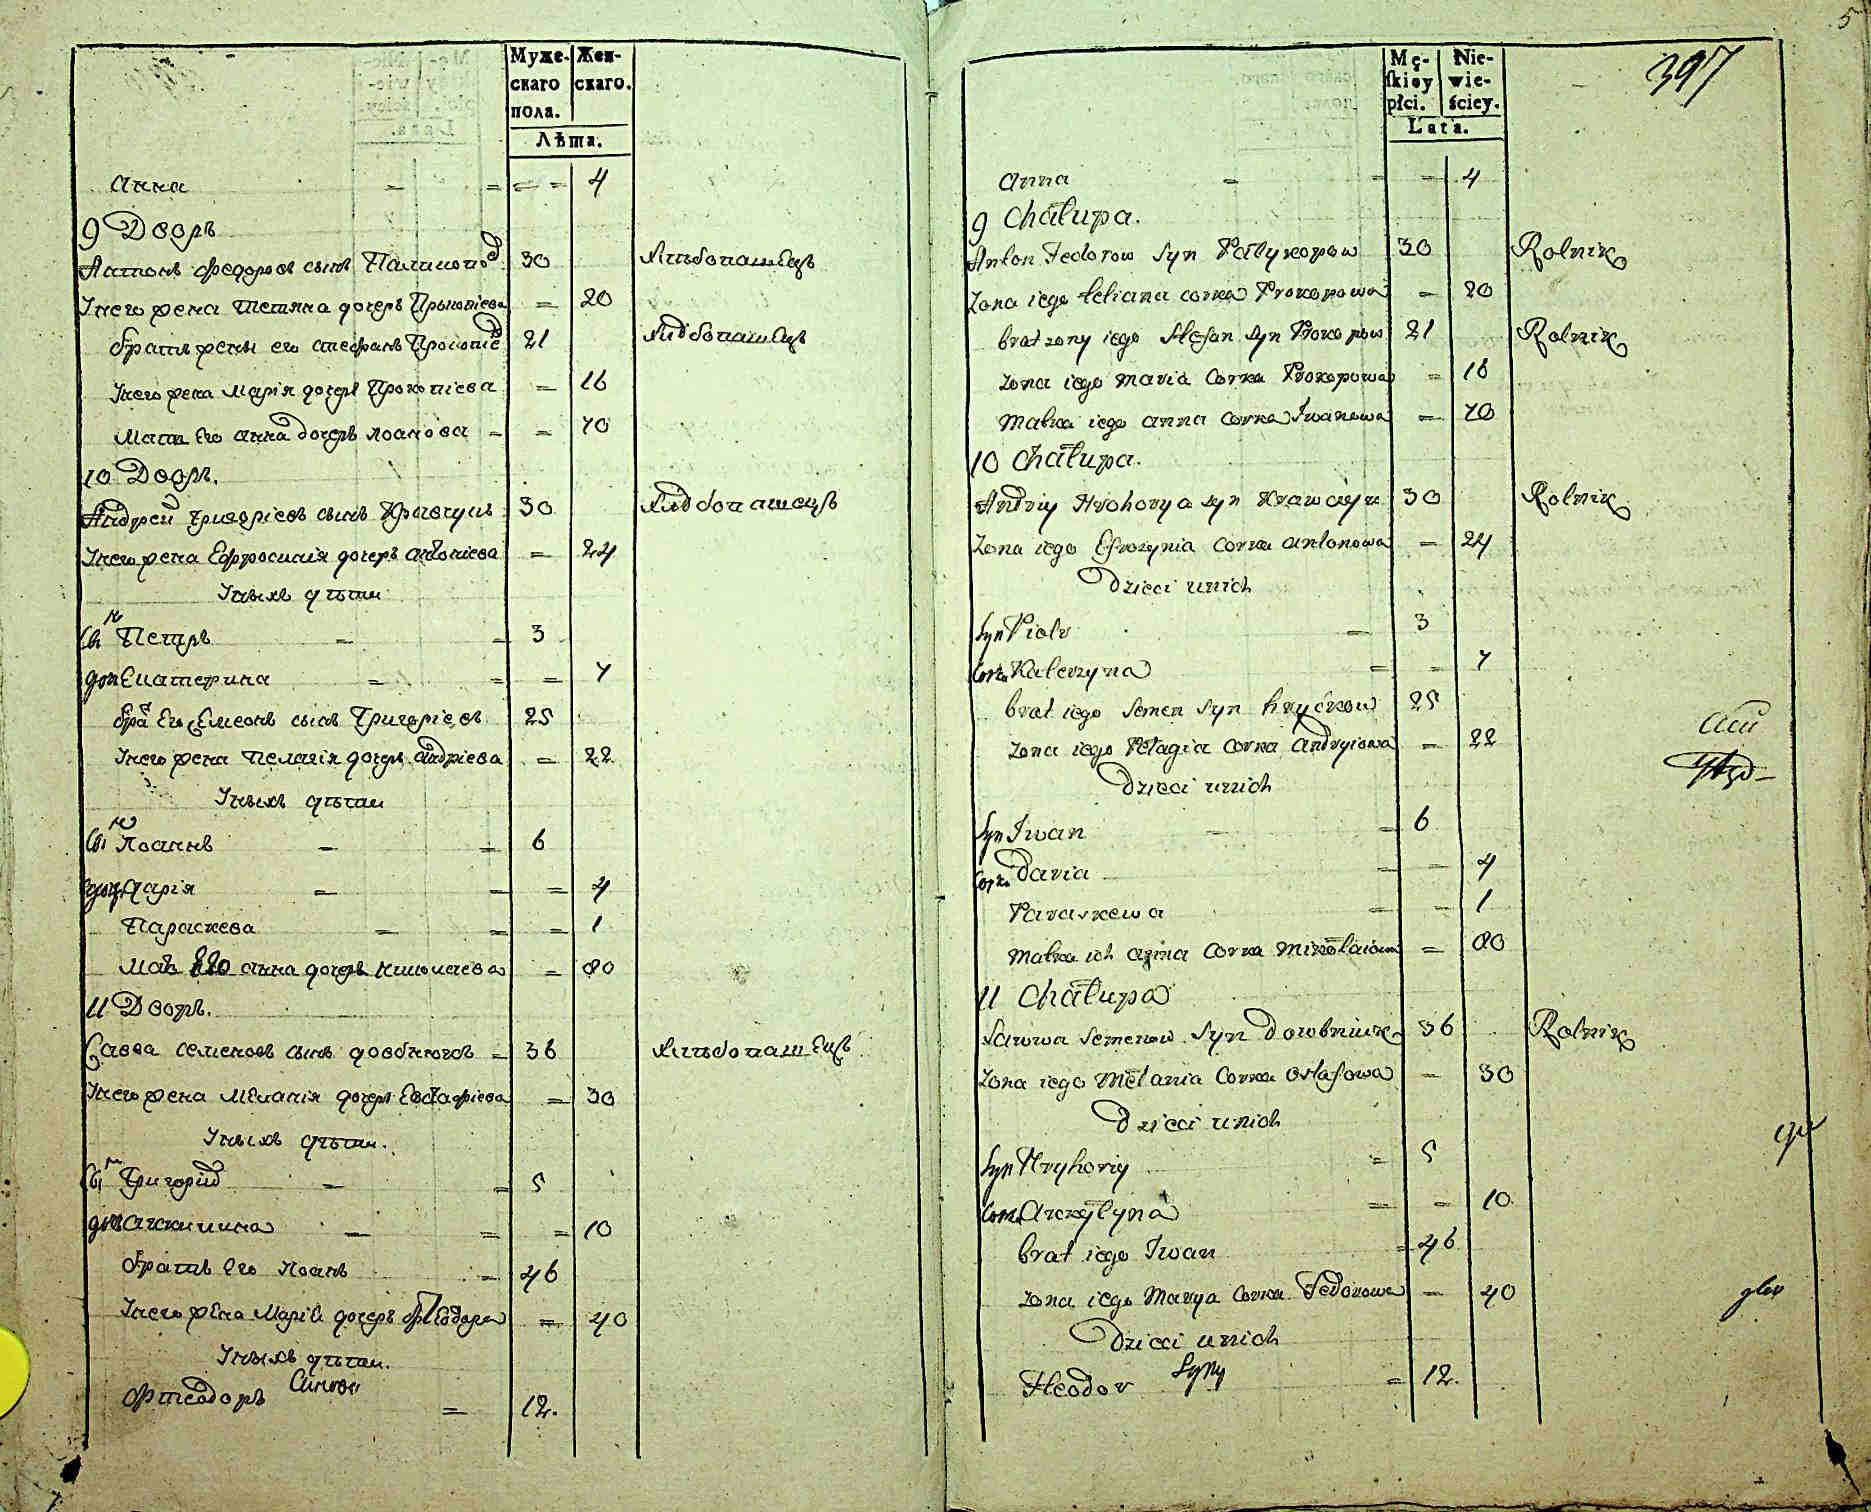 Муже- Жен-
скаго скаго.
пола.
Лѣта.
Анна 4
9 Дворъ
Антонъ Федоровъ сынъ 30 Хлѣбопашецъ
У него жена Тетяна дочерь Прокопіева 20
братъ жены его Стефанъ 21 Хлѣбопашецъ
У него жена Марія дочерь Прокопіева 16
Мати Его Анна дочерь Іоанова 70
10 Дворъ.
Андрей Григоріевъ сынъ 30 Хлѣбопашецъ
У него жена Ефросинія дочерь Антоніева 24
У нихъ дѣти
сынъ Петръ 3
доч Екатерина 7
бра Его Симеонъ сынъ Григоріевъ 25
У него жена Пелагія дочерь Андріева 22
У нихъ дѣти
сынъ Іоаннъ 6
доч Дарія 4
Параскева 1
Мати Анна дочерь Николаева 80
11 Дворъ.
Савва Семеновъ сынъ 36 Хлѣбопашецъ
У него жена Меланія дочерь Евстафіева 30
У нихъ дѣти.
сынъ Григорій 5
доч 10
братъ Его Іоанъ 46
У него жена Марія дочерь Феодора 40
У нихъ дѣти.
Синови
Фтеодоръ 12.
5
397
Mę- Nie-
skiey wie-
płci. ściey.
Lata.
Anna 4
9 Chałupa.
Anton Fedorow Syn Palykopow 30 Rolnik
Zona iego Tetiana corka Prokopowa 20
brat zony iego Stefan Syn Prokopow 21 Rolnik
Zona iego Maria Corka Prokopowa 16
Matka iego Anna Corka Iwanowa 70
10 Chałupa.
Andriy Hrohorya Syn Krawczyk 30 Rolnik
Zona iego Efrozynia Corka Antonowa 24
Dzieci u nich
Syn Piotr 3
Cork Katerzyna 7
brat iego Semen Syn Hryćkow 25
Zona iego Pelagia Corka Andryiowa 22
Dzieci u nich
Syn Iwan 6
Cork Daria 4
Paraskewa 1
Matka ich Anna Corka Mikołaiowa 80
11 Chałupa
Sawwa Semenow Syn Dowbniuk 36 Rolnik
Zona iego Melania Corka Ostafowa 30
Dzieci u nich
Syn Hryhoriy 5
Cork 10
brat iego Iwan 46
Zona iego Marya Corka Fedorowa 40
Dzieci u nich
Syny
Fteodor 12.